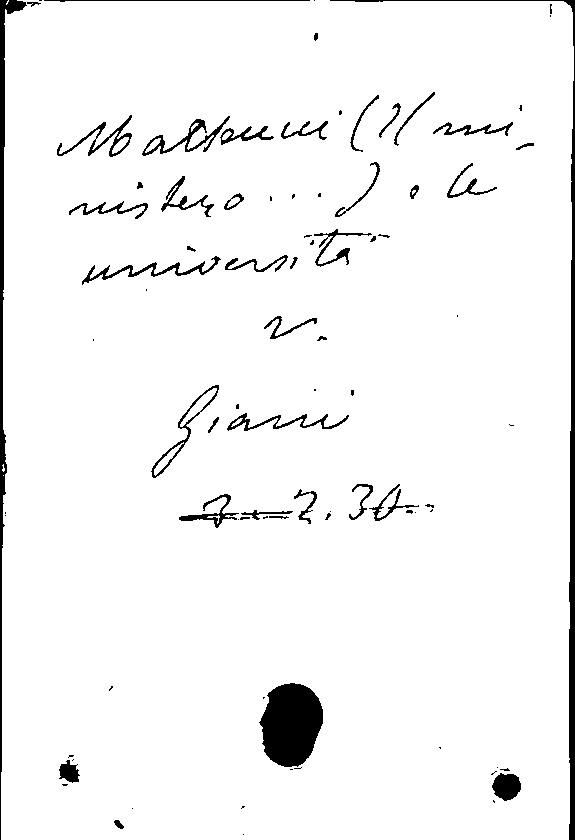 Matteucci (Il mi-
nistero ...) e le
università
v.
Giani
3. 2. 30.